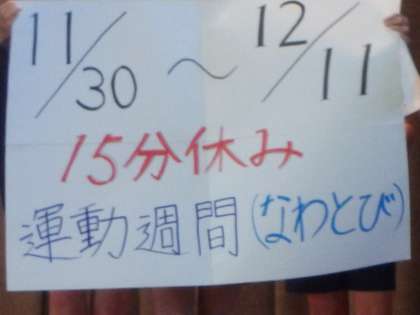 11/30 〜 12/11
15分休み
運動週間(なわとび)